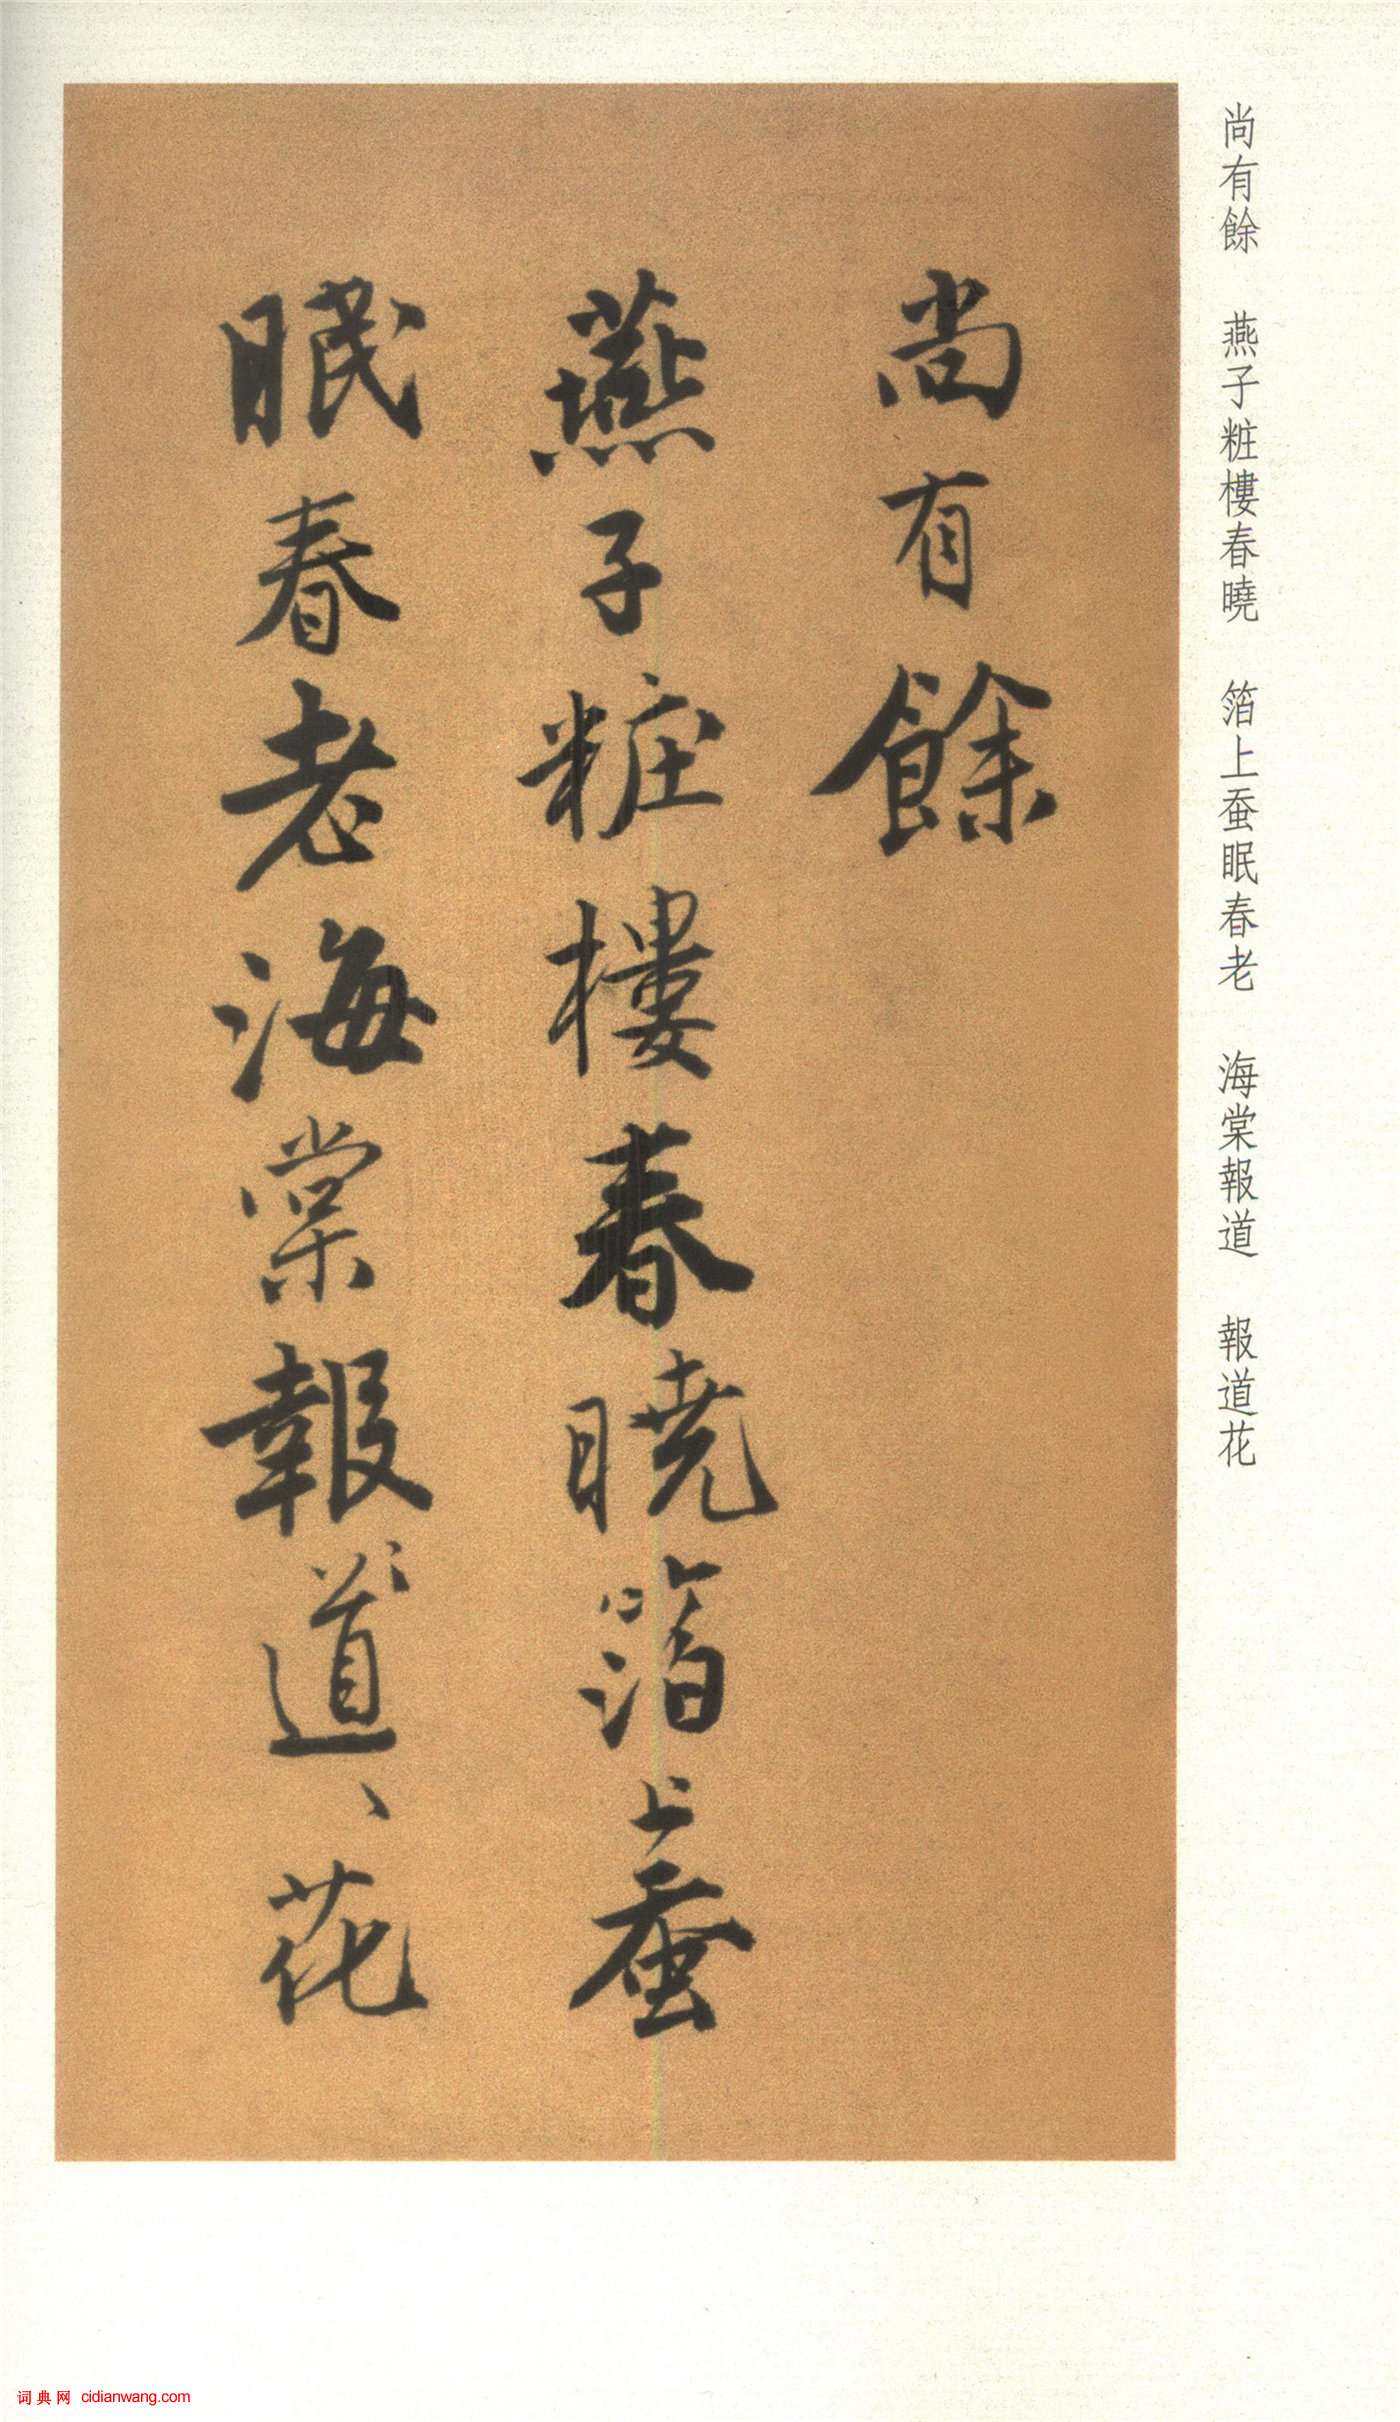 尚有餘　燕子粧樓春曉　箔上蚕眠春老　海棠報道　報道花
尚有餘
燕子粧樓春曉箔上蚕
眠春老海棠報道〻花
词典网 cidianwang.com